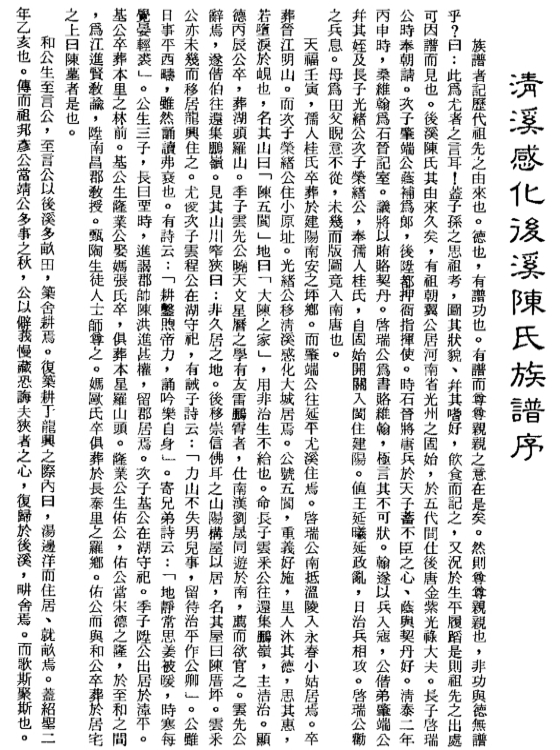 清溪感化後溪陳氏族譜序
族譜者記歷代祖先之由來也。德也，有譜功也。有譜而尊尊親親之意在是矣。然則尊尊親親也，非功與德無譜
乎？曰：此爲尤者之言耳！蓋子孫之思祖考，圖其狀貌、幷其嗜好，飲食而記之，又況於生平履蹈是則祖先之出處
可因譜而見也。後溪陳氏其由來久矣，有祖朝翼公居河南省光州之固始，於五代間仕後唐金紫光祿大夫。長子啓瑞
公時奉朝請。次子肇端公蔭補爲郞，後陞都押衙指揮使。時石晉將唐兵於天子蓄不臣之心、蔭與契丹好。清泰二年
丙申時，桑維翰爲石晉記室。議將以賄賂契丹。啓瑞公爲書賂維翰，極言其不可狀。翰遂以兵入寇，公偕弟肇端公
幷其姪及長子光緒公次子榮緒公，奉孺人桂氏，自固始開關入閩住建陽。値王延曦延政亂，日治兵相攻。啓瑞公勸
之兵息。母爲田父睨意不從，未幾而版圖竟入南唐也。
天福壬寅，孺人桂氏卒葬於建陽南安之坪鄉。而肇端公往延平尤溪住焉。啓瑞公南抵溫陵入永春小姑居焉。卒
葬晉江明山。而次子榮緒公住小原址。光緒公移淸溪感化大城居焉。公號五閩，重義好施，里人沐其德，思其惠，
若墮淚於峴也，名其山曰「陳五閩」地曰「大陳之家」，用非治生不給也。命長子雲釆公往還集鵬嶺，主清治。顯
德丙辰公卒，葬湖頭羅山。季子雲先公曉天文星曆之學有友雷鵬霄者，仕南漢劉晟同遊於南，薦而欲官之。雲先公
辭焉，遂偕伯往還集鵬嶺。見其山川窄狹曰：非久居之地。後移崇信佛耳之山陽構屋以居，名其屋曰陳厝坪。雲釆
公亦未幾而移居龍興住之。尤侬次子雲程公在湖守祀，有誡子詩云：「力山不失男兒事，留待治平作公卿」。公雖
日事平西疇，雖然誦讀弗衰也。有詩云：「耕鑿煦帝力，誦吟樂自身」。寄兄弟詩云：「地靜常思姜被暖，時寒每
覺晏輕裘」。公生三子，長曰栗時，進謁郡帥陳洪進甚權，留郡居焉。次子基公在湖守祀。季子陞公出居於漳平。
基公卒葬本里之林前。基公生隆業公娶媽張氏卒，俱葬本里羅山頭。隆業公生佑公，佑公當宋德之隆，於至和之間
，爲江進賢敎諭，陞南昌郡敎授。甄陶生徒人士師尊之。媽歐氏卒俱葬於長泰里之羅鄉。佑公而與和公卒葬於居宅
之上曰陳墓者是也。
和公生至言公，至言公以後溪多畝田，築舍耕焉。復築耕于龍興之際內曰，湯邊洋而住居、就畝焉。蓋紹聖二
年乙亥也。傳而祖邦彥公當靖公多事之秋，公以僻我慢藏恐誨夫狹者之心，復歸於後溪，畊舍焉。而歌斯聚斯也。